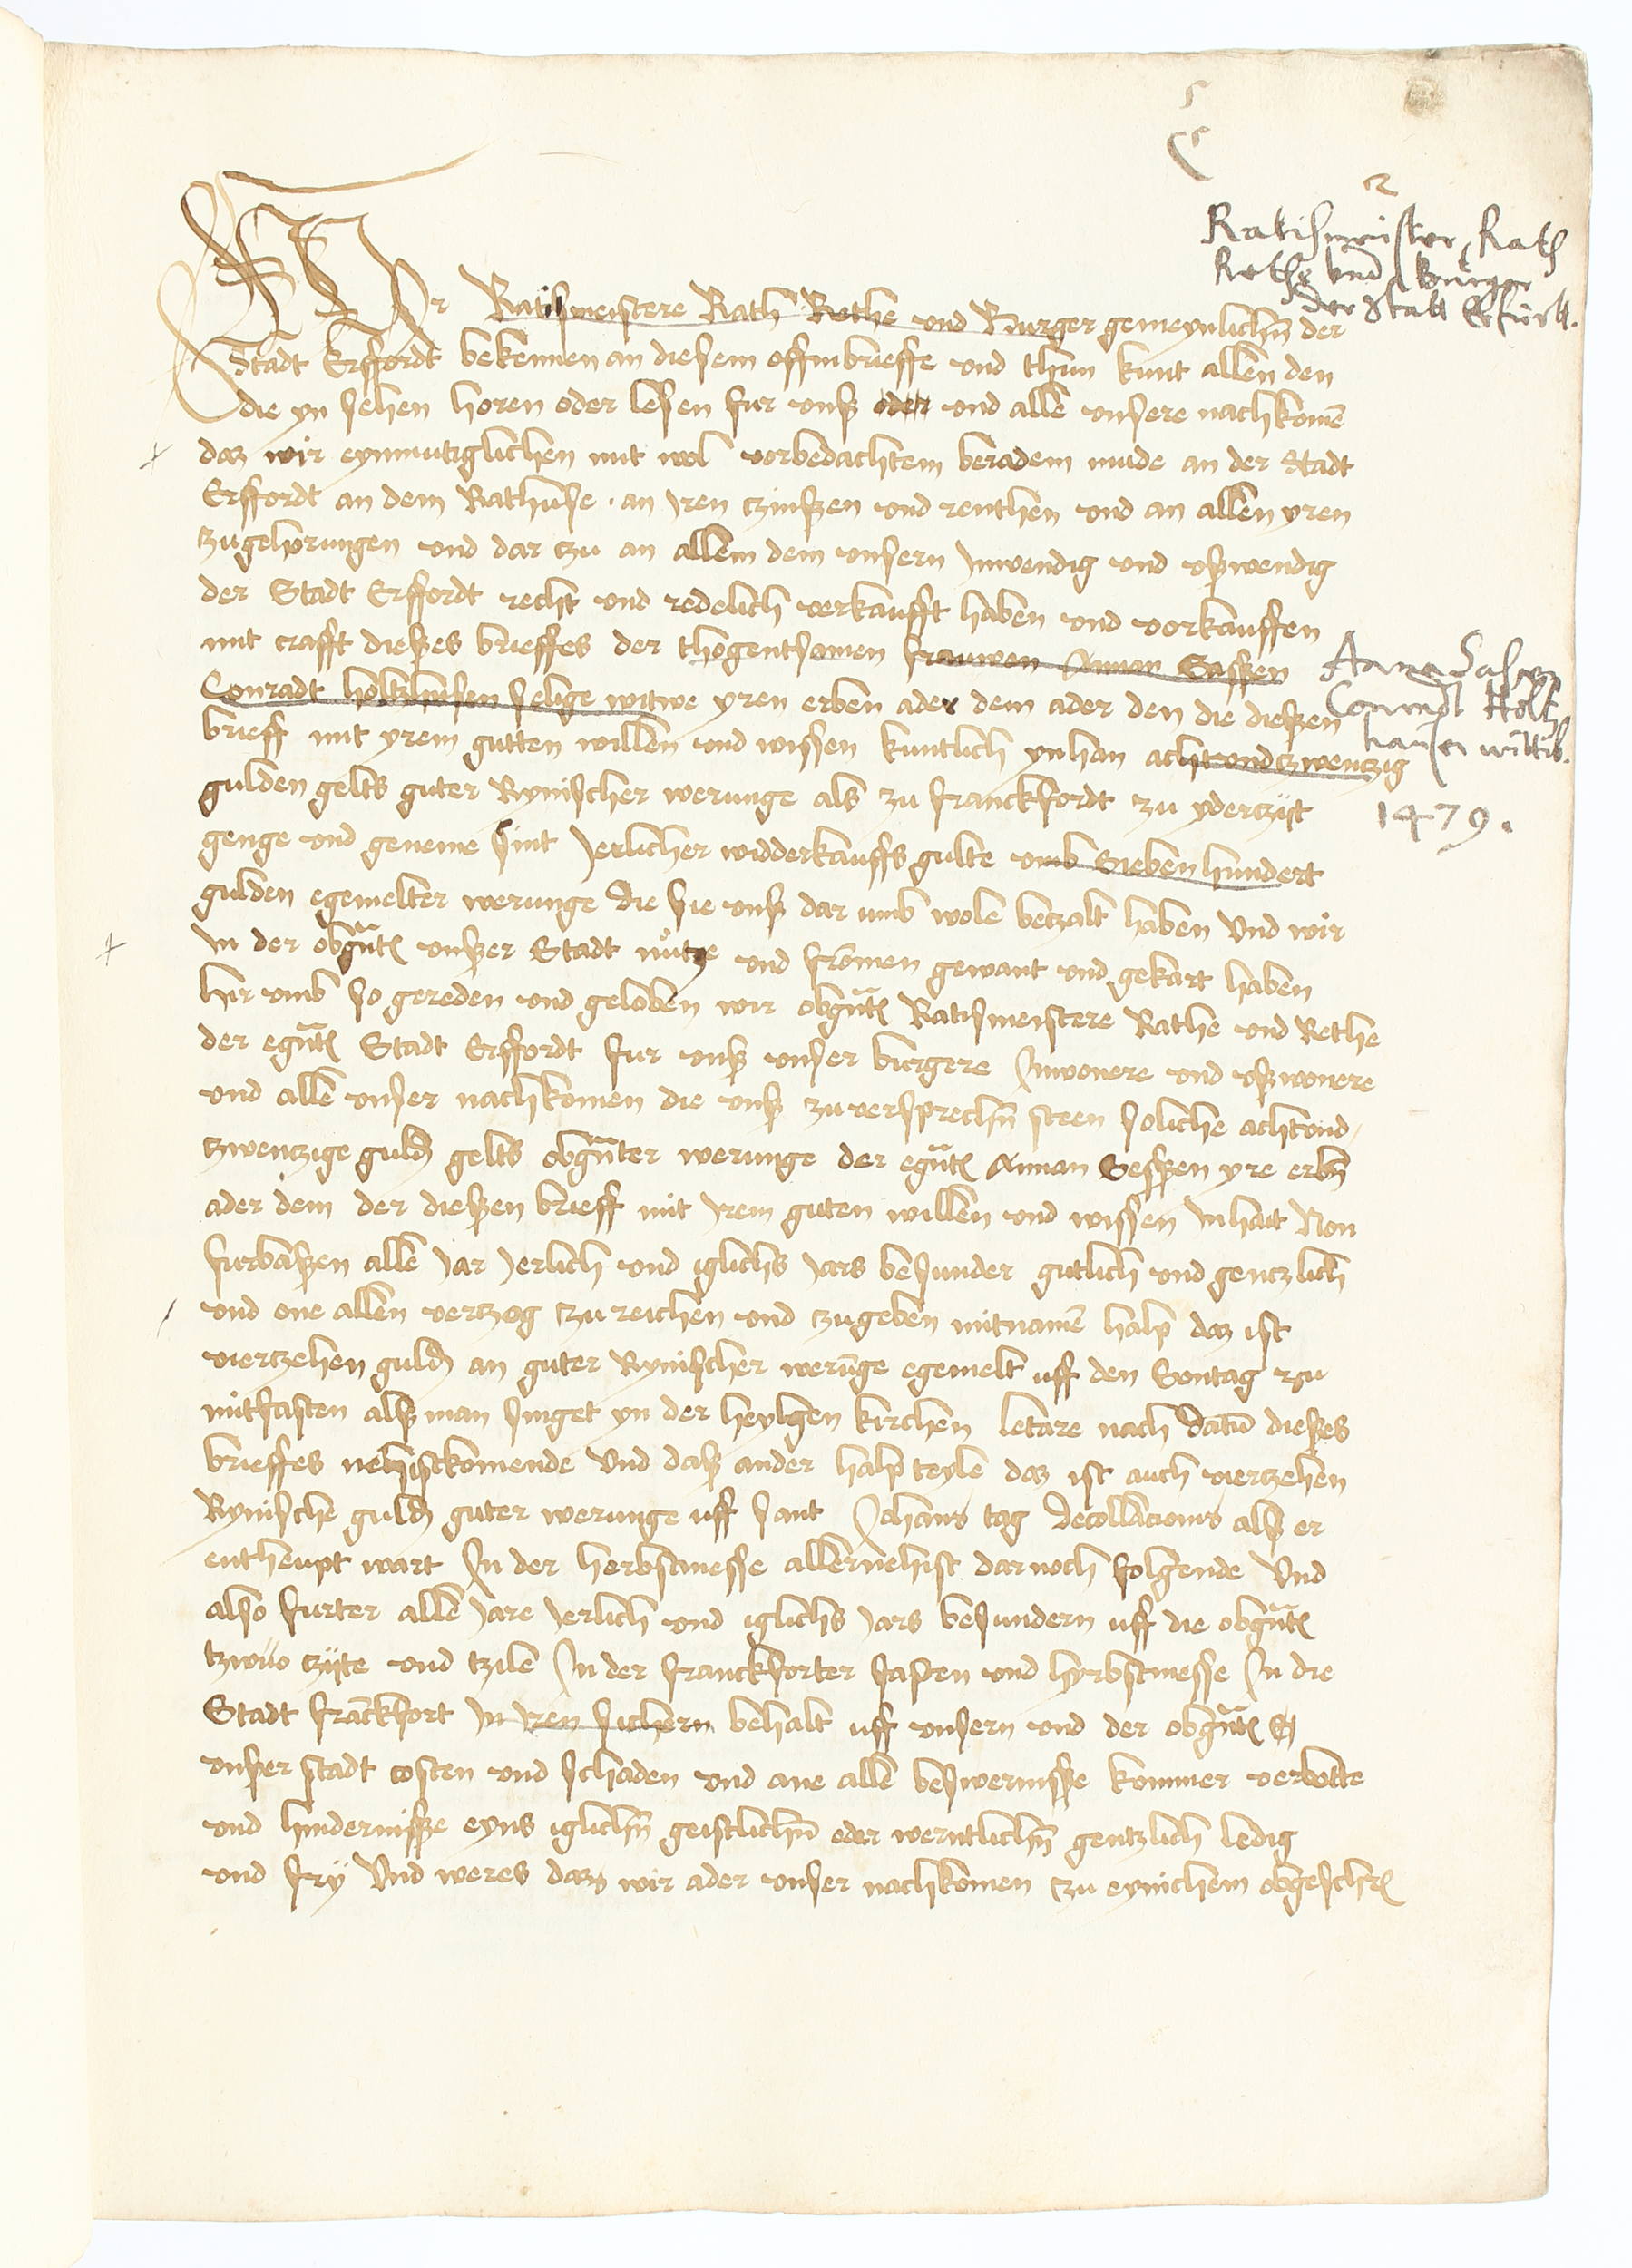 Ratismeister, Rath
Rethe vnd Burger
der Statt Erfurtt.
Wir Ratismeistere Rath Rethe vnd Burger gemeynlichn̄ der
Stadt Erffordt bekennen an diesem offinbrieffe vnd thun kunt allen den
die yn sehen horen oder lesen fur vnß oder vnd alle vnsere nachkomē
daz wir eynmutiglichen mit wol vorbedachtem beradem mude an der Stadt
Erffordt an dem Rathuse · an yren czinßen vnd renthen vnd an allen yren
zugehorungen vnd dar zu an allem dem vnsern Inwendig vnd vßwendig
der Stadt Erffordt recht vnd redelich verkaufft haben vnd vorkauffen
mit crafft dießes brieffes der thogentsamen frauwen Annan Saßen
Conradt holtzhusen selige witwe yren erben ader dem ader den die dießen
Anna Saßen
Conradt Holtz
hausen wittib.
brieff mit yrem gutten willen vnd wissen kuntlich ynhan achtvndczwenczig
gulden gelts guter Rynischer werunge als zu franckfordt zu yderczijt
1479.
genge vnd geneme sint Jerlicher widderkauffs gulte vmb Sieben hundert
gulden egemelter werunge die sie vnß dar vmb wole betzalt haben Vnd wir
In der obgn̄t vnßer Stadt nutze vnd fromen gewant vnd gekart haben
hir vmb so gereden vnd geloben wir obgn̄t Ratismeistere Rathe vnd Rethe
der egn̄t Stadt Erffordt fur vnß vnser burgere Inwonere vnd vßwonere
vnd alle vnser nachkomen die vnß zuversprechn̄ steen soliche achtvnd
zwenczige guld gelts obgn̄ter werunge der egn̄t Annan Seßen yre erbn̄
ader dem der dießen brieff mit yrem guten willen vnd wissen Inhait Non
furbaßen alle Jar Jerlich vnd iglichs Jars besunder gutlich vnd genczlich
vnd one allen vertzog zu reichen vnd zugeben mitnamē halp daz ist
viertzehen guld an guter Rynischer werūge egemelt uff den Sontag zu
mitfasten alß man singet yn der heylgen kirchen letare nach datū dießes
brieffes nehistkomende Vnd daß ander halp teyle daz ist auch viertzehen
Rynische guld guter werunge uff sant Johans tag decollacionis alß er
entheupt wart In der herbstmesse allernehist dar noch folgende Vnd
also furter alle Jare Jerlich vnd iglichs Jars besundern uff die obgn̄t
tzwuo czijte vnd tzile In der franckforter fasten vnd hyrbstmesse In die
Stadt frāckfort In yren sichern behalt uff vnsern vnd der obgn̄t
vnßer stadt costen vnd schaden vnd ane alle beswerniße kommer verbotte
vnd hinderniße eyns iglichn̄ geistlichn̄ oder werntlichn̄ gentzlich ledig
vnd fry Vnd weres daz wir ader vnser nachkomen zu eynichem obgeschr